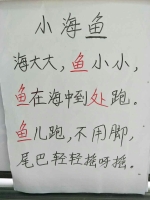 小海鱼
海大大，鱼小小，
鱼在海中到处跑。
鱼儿跑，不用脚，
尾巴轻轻摇呀摇。